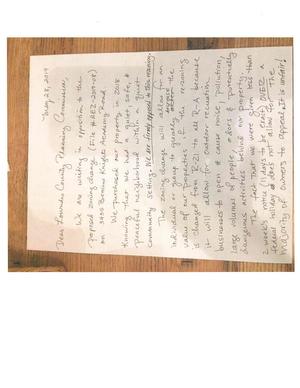 May 28, 2019
Dear Lowndes County Planning Commission,
We are writing in opposition to the
proposed zoning change (File # REZ-2019-08)
on 3955 Bemiss Knights Academy Road.
We purchased our property in 2018
knowing that we had a quiet, safe, &
peaceful neighborhood with a quiet
community setting. We are firmly opposed to this rezoning.
The zoning change will allow for an
individual or group to greatly affect the
value of our properties if the rezoning
is changed from R-21 to all R-A because
it will allow for outdoor recreation
businesses to open & cause noise, pollution,
large volumes of people, odors & potentially
dangerous activities behind our property.
The fact that we were given less than
2 weeks notice (11 days to be exact) OVER a
federal holiday does not allow for the
majority of owners to appeal. It is unfair!